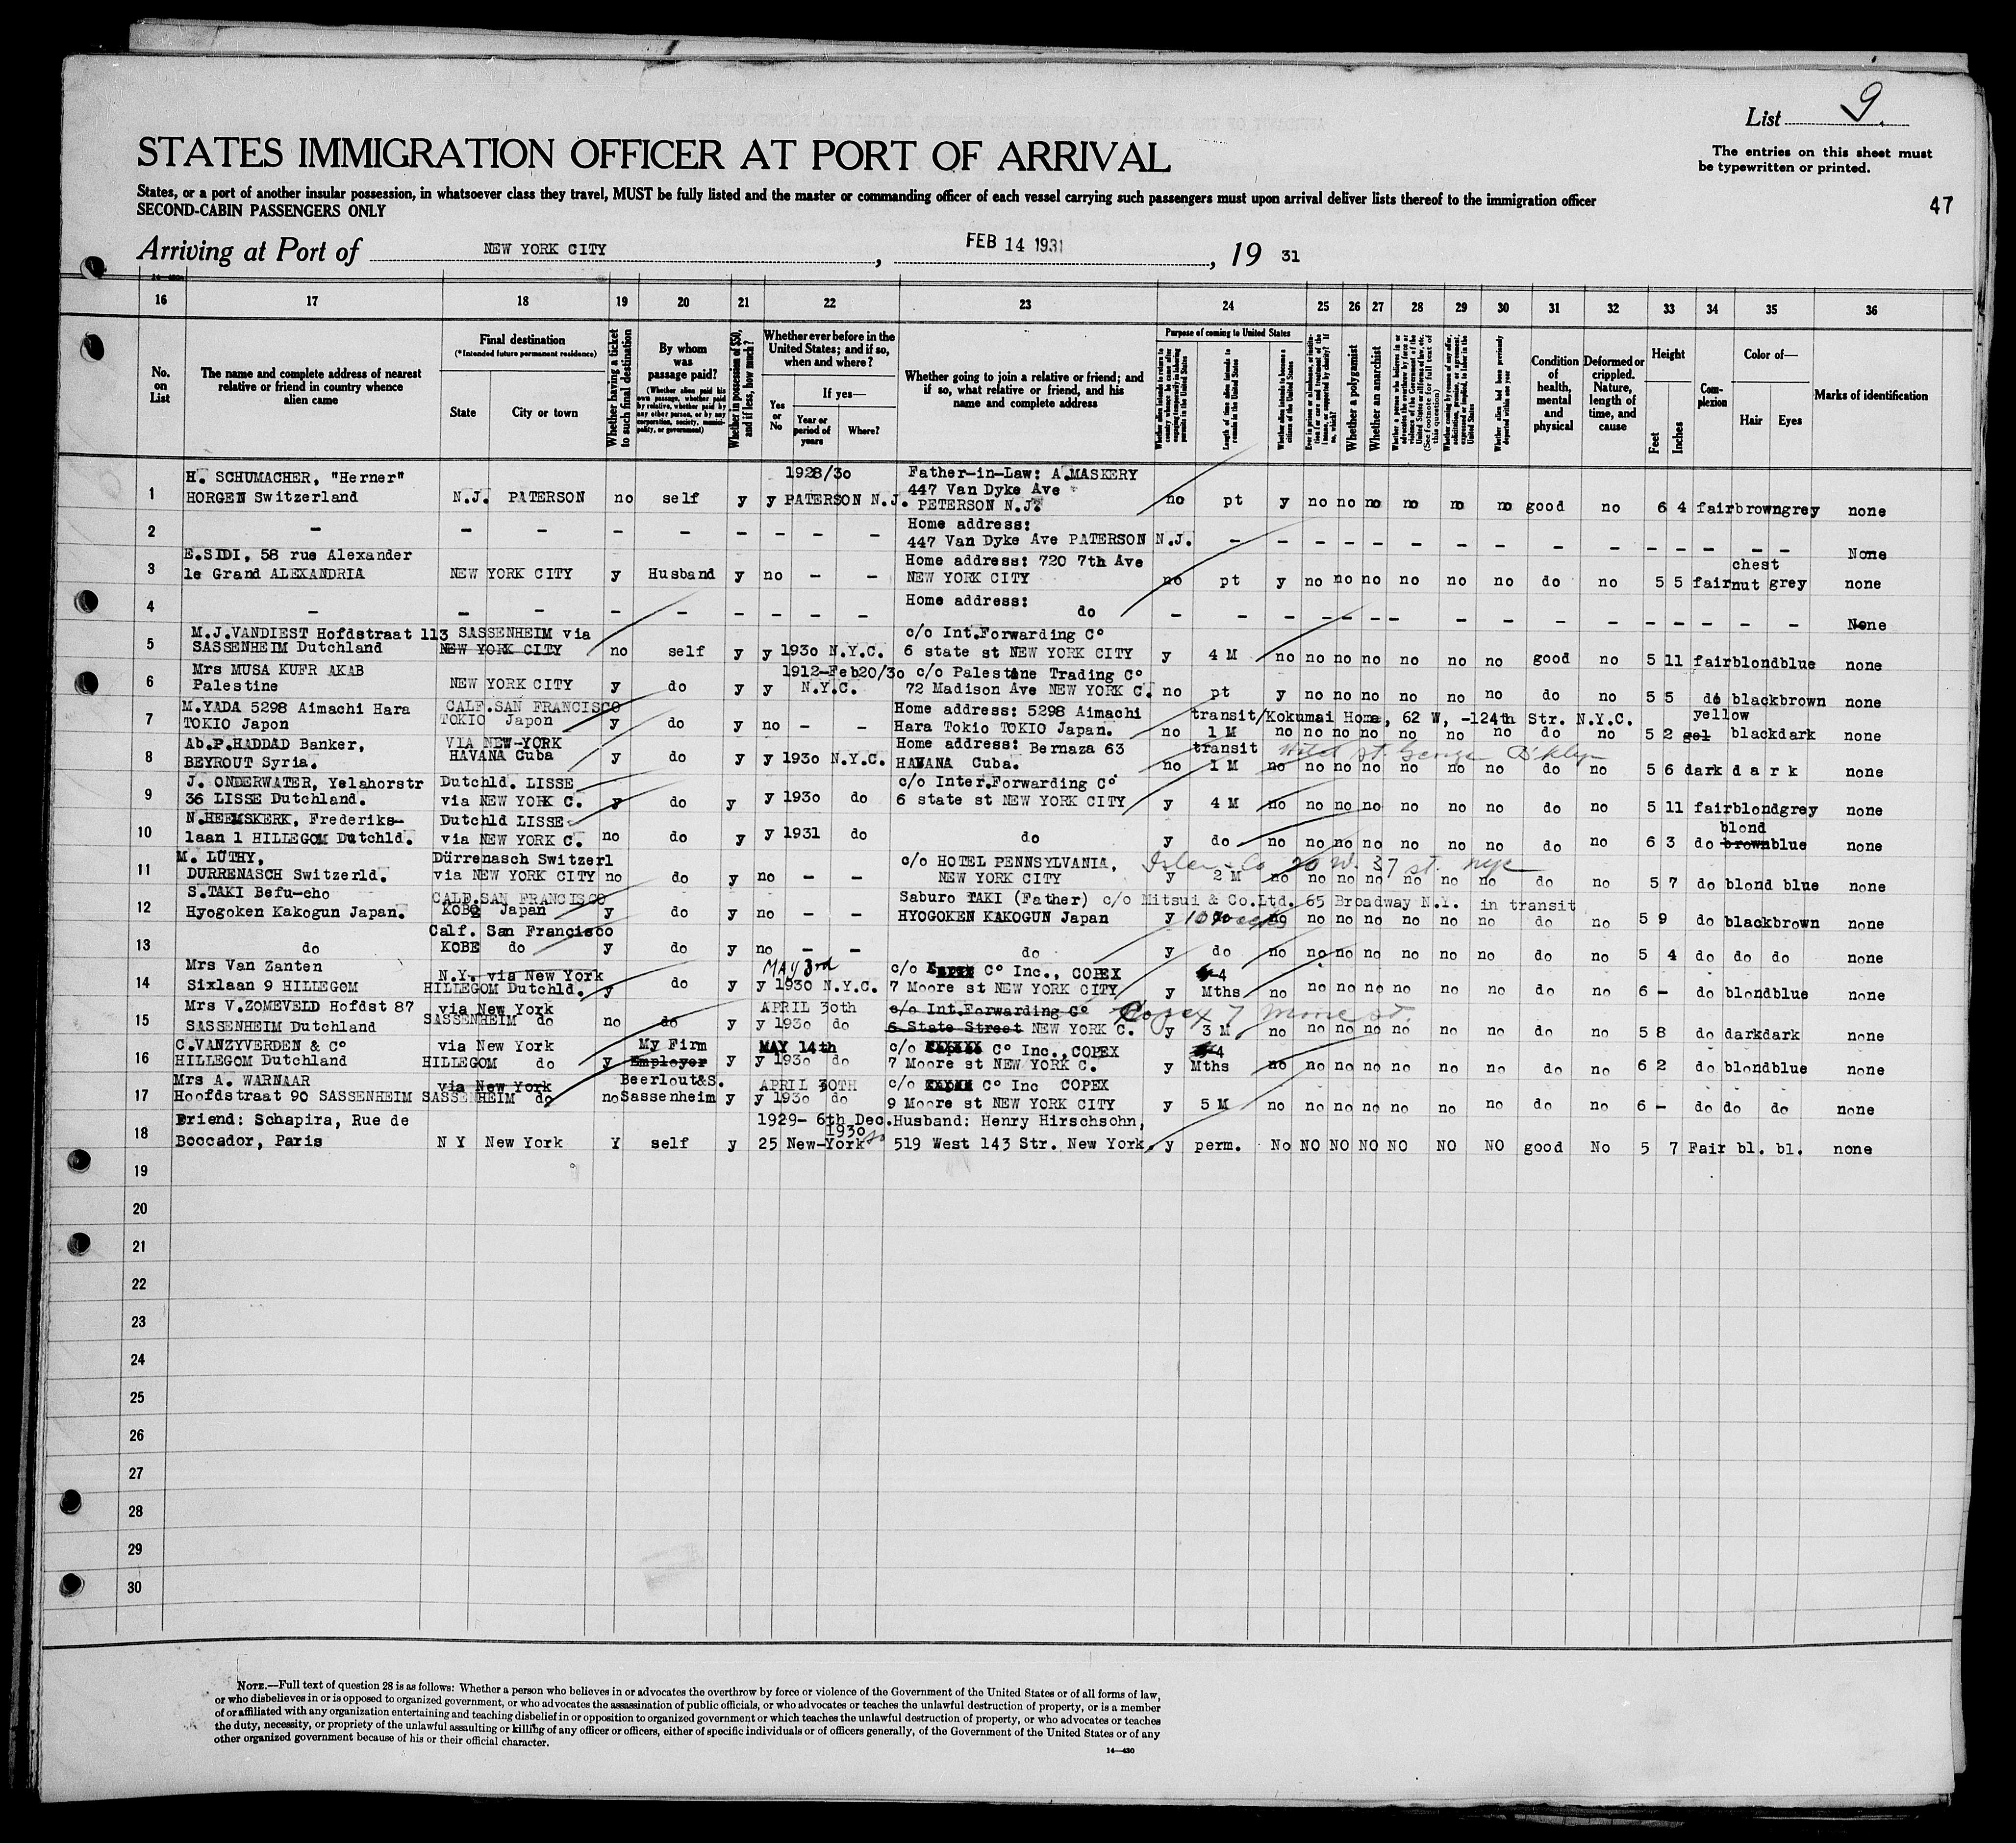 List 9.
STATES IMMIGRATION OFFICER AT PORT OF ARRIVAL
The entries on this sheet must
be typewritten or printed.
States, or a port of another insular possession, in whatsoever class they travel, MUST be fully listed and the master or commanding officer of each vessel carrying such passengers must upon arrival deliver lists thereof to the immigration officer
SECOND-CABIN PASSENGERS ONLY
47
Arriving at Port of NEW YORK CITY, FEB 14 1931, 19 31
16 17 18 19 20 21 22 23 24 25 26 27 28 29 30 31 32 33 34 35 36
No. on List
The name and complete address of nearest relative or friend in country whence alien came
Final destination
(*Intended future permanent residence)
State
City or town
Whether having a ticket to such final destination
By whom was passage paid?
(Whether alien paid his own passage, whether paid by relative, whether paid by any other person, or by any corporation, society, municipality, or government)
Whether in possession of $50, and if less, how much?
Whether ever before in the United States; and if so, when and where?
Yes or No
If yes—
Year or period of years
Where?
Whether going to join a relative or friend; and if so, what relative or friend, and his name and complete address
Purpose of coming to United States
Whether alien intends to return to country whence he came after engaging temporarily in laboring pursuits in the United States
Length of time alien intends to remain in the United States
Whether alien intends to become a citizen of the United States
Ever in prison or almshouse, or institution for care and treatment of the insane, or supported by charity? If so, which?
Whether a polygamist
Whether an anarchist
Whether a person who believes in or advocates the overthrow by force or violence of the Government of the United States or all forms of law, etc. (See footnote for full text of this question)
Whether coming by reason of any offer, solicitation, promise, or agreement, expressed or implied, to labor in the United States
Whether alien had been previously deported within one year
Condition of health, mental and physical
Deformed or crippled. Nature, length of time, and cause
Height
Feet
Inches
Complexion
Color of—
Hair
Eyes
Marks of identification
1 H. SCHUMACHER, "Herner" 1928/30 Father-in-Law: A.MASKERY
HORGEN Switzerland N.J. PATERSON no self y y PATERSON N.J. 447 Van Dyke Ave
PETERSON N.J. no pt y no no no no no no good no 6 4 fair brown grey none
2 – – – – – – – – – Home address:
447 Van Dyke Ave PATERSON N.J. – – – – – – – – – – – – – – – None
3 E.SIDI, 58 rue Alexander Home address: 720 7th Ave chest
le Grand ALEXANDRIA NEW YORK CITY y Husband y no – – NEW YORK CITY no pt y no no no no no no do no 5 5 fair nut grey none
4 – – – – – – – – – Home address:
do – – – – – – – – – – – – – – – – None
5 M.J.VANDIEST Hofdstraat 113 SASSENHEIM via c/o Int.Forwarding Co
SASSENHEIM Dutchland NEW YORK CITY no self y y 1930 N.Y.C. 6 state st NEW YORK CITY y 4 M no no no no no no no good no 5 11 fair blond blue none
6 Mrs MUSA KUFR AKAB 1912-Feb20/30 c/o Palestine Trading Co
Palestine NEW YORK CITY y do y y N.Y.C. 72 Madison Ave NEW YORK C. no pt y no no no no no no do no 5 5 do black brown none
7 M.YADA 5298 Aimachi Hara CALF.SAN FRANCISCO Home address: 5298 Aimachi transit/Kokumai Home, 62 W, -124th Str. N.Y.C. yellow
TOKIO Japon TOKIO Japon y do y no – – Hara Tokio TOKIO Japan. no 1 M no no no no no no no do no 5 2 gel black dark none
8 Ab.P.HADDAD Banker, VIA NEW-YORK Home address: Bernaza 63 transit Hotel St. George B'klyn
BEYROUT Syria. HAVANA Cuba y do y y 1930 N.Y.C. HAVANA Cuba. no 1 M no no no no no no no do no 5 6 dark d a r k none
9 J. ONDERWATER, Yelahorstr Dutchld. LISSE c/o Inter.Forwarding Co
36 LISSE Dutchland. via NEW YORK C. y do y y 1930 do 6 state st NEW YORK CITY y 4 M no no no no no no no do no 5 11 fair blond grey none
10 N.HEEMSKERK, Frederiks- Dutchld LISSE blond
laan 1 HILLEGOM Dutchld. via NEW YORK C. no do y y 1931 do do y do no no no no no no no do no 6 3 do brown blue none
11 M. LÜTHY, Dürrenasch Switzerl c/o HOTEL PENNSYLVANIA, 20 W. 37 st. nyc
DURRENASCH Switzerld. via NEW YORK CITY no do y no – – NEW YORK CITY y 2 M no no no no no no no do no 5 7 do blond blue none
12 S.TAKI Befu-cho CALF.SAN FRANCISCO Saburo TAKI (Father) c/o Mitsui & Co.Ltd. 65 Broadway N.Y. in transit
Hyogoken Kakogun Japan. KOBE Japan y do y no – – HYOGOKEN KAKOGUN Japan y no no no no no no no do no 5 9 do black brown none
13 Calf. San Francisco
do KOBE do y do y no – – do y do no no no no no no no do no 5 4 do do do none
14 Mrs Van Zanten N.Y. via New York MAY 3rd c/o Co Inc., COPEX 4
Sixlaan 9 HILLEGOM HILLEGOM Dutchld. y do y y 1930 N.Y.C. 7 Moore st NEW YORK CITY y Mths no no no no no no no do no 6 – do blond blue none
15 Mrs V.ZOMEVELD Hofdst 87 via New York APRIL 30th c/o Int.Forwarding Co Copex 7 Moore st.
SASSENHEIM Dutchland SASSENHEIM do no do y y 1930 do 6 State Street NEW YORK C. y 3 M no no no no no no no do no 5 8 do dark dark none
16 C.VANZYVERDEN & Co via New York My Firm MAY 14th c/o Co Inc., COPEX 4
HILLEGOM Dutchland HILLEGOM do y Employer y y 1930 do 7 Moore st NEW YORK C. y Mths no no no no no no no do no 6 2 do blond blue none
17 Mrs A. WARNAAR via New York Beerlout&S. APRIL 30TH c/o Co Inc COPEX
Hoofdstraat 90 SASSENHEIM SASSENHEIM do no Sassenheim y y 1930 do 9 Moore st NEW YORK CITY y 5 M no no no no no no no do no 6 – do do do none
18 Friend: Schapira, Rue de 1929- 6th Dec. 1930 Husband: Henry Hirschsohn,
Boccador, Paris N Y New York Y self y 25 New-York 519 West 143 Str. New York. y perm. No NO NO NO NO NO NO good No 5 7 Fair bl. bl. none
19
20
21
22
23
24
25
26
27
28
29
30
NOTE.—Full text of question 28 is as follows: Whether a person who believes in or advocates the overthrow by force or violence of the Government of the United States or of all forms of law,
or who disbelieves in or is opposed to organized government, or who advocates the assassination of public officials, or who advocates or teaches the unlawful destruction of property, or is a member
of or affiliated with any organization entertaining and teaching disbelief in or opposition to organized government or which teaches the unlawful destruction of property, or who advocates or teaches
the duty, necessity, or propriety of the unlawful assaulting or killing of any officer or officers, either of specific individuals or of officers generally, of the Government of the United States or of any
other organized government because of his or their official character.
14—430